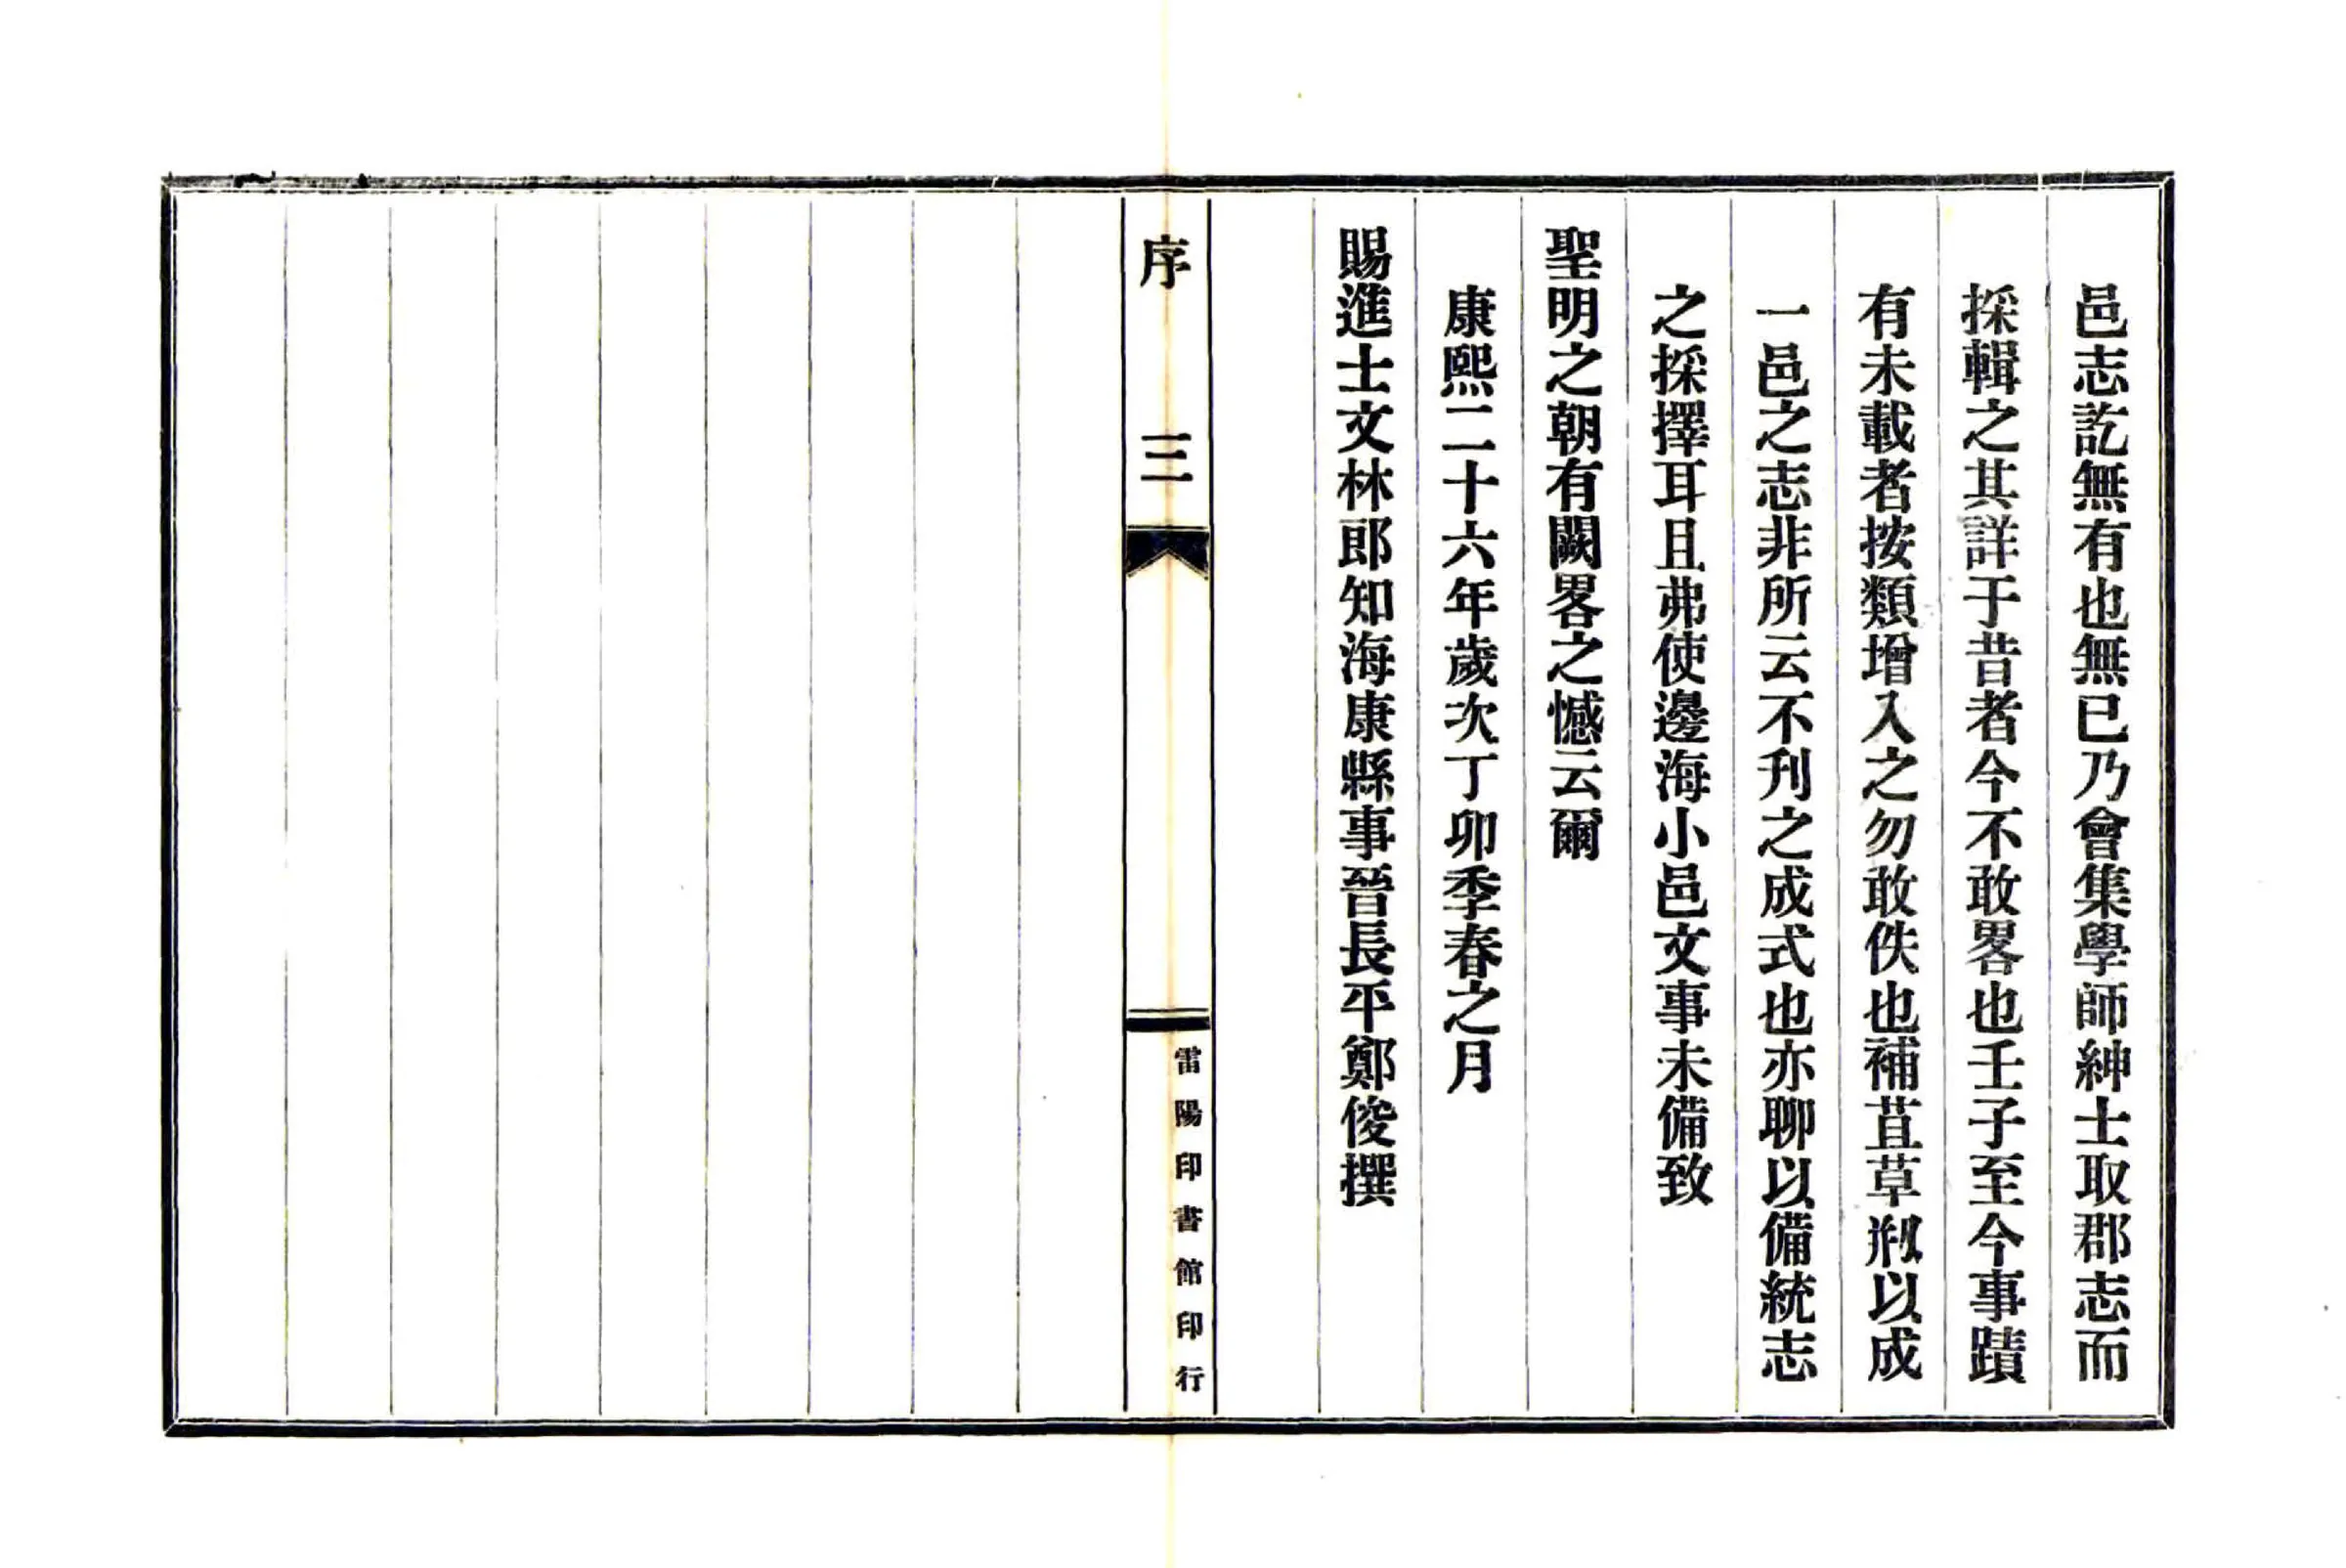 邑志訖無有也無已乃會集學師紳士取郡志而
採輯之其詳于昔者今不敢畧也壬子至今事蹟
有未載者按類增入之勿敢佚也補苴草剏以成
一邑之志非所云不刊之成式也亦聊以備統志
之採擇耳且弗使邊海小邑文事未備致
聖明之朝有闕畧之憾云爾
康熙二十六年歲次丁卯季春之月
賜進士文林郎知海康縣事晉長平鄭俊撰
序 三
雷陽印書館印行